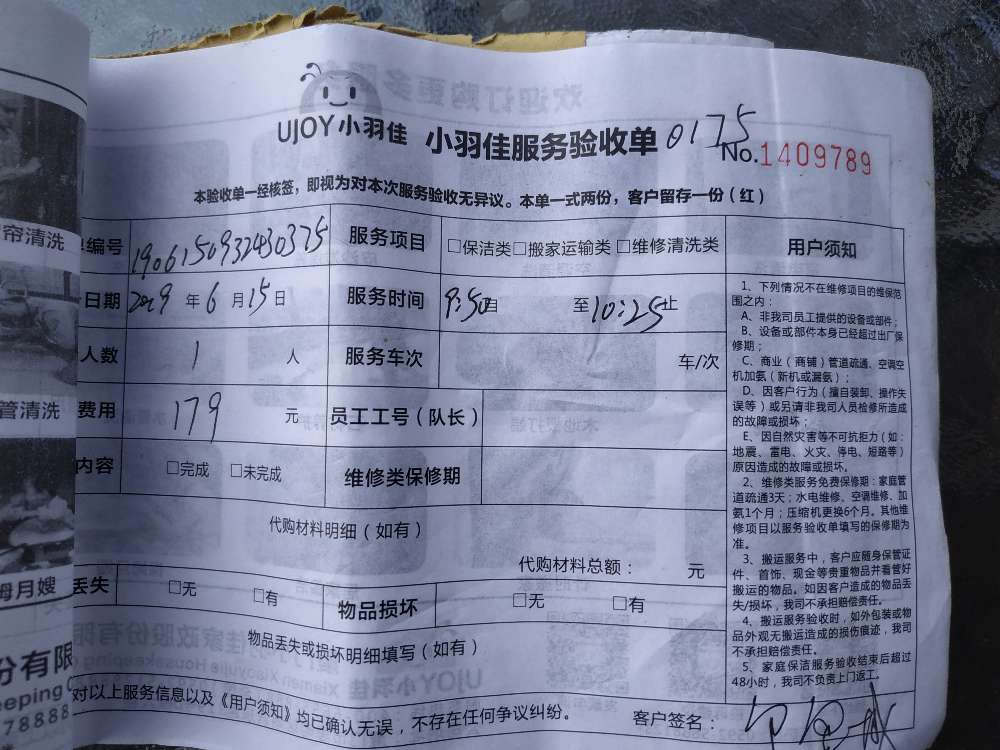 UJOY小羽佳 小羽佳服务验收单 0175
No.1409789
本验收单一经核签，即视为对本次服务验收无异议。本单一式两份，客户留存一份（红）
编号 1906150932430375 服务项目 □保洁类□搬家运输类□维修清洗类
日期 2019 年 6 月 15 日 服务时间 9:50自 至10:25止
人数 1 人 服务车次 车/次
费用 179 元 员工工号（队长）
内容 □完成 □未完成 维修类保修期
代购材料明细（如有）
代购材料总额： 元
丢失 □无 □有 物品损坏 □无 □有
物品丢失或损坏明细填写（如有）
对以上服务信息以及《用户须知》均已确认无误，不存在任何争议纠纷。 客户签名：
用户须知
1、下列情况不在维修项目的维保范
围之内：
A、非我司员工提供的设备或部件；
B、设备或部件本身已经超过出厂保
修期；
C、商业（商铺）管道疏通、空调空
机加氨（新机或漏氨）；
D、因客户行为（擅自装卸、操作失
误等）或另请非我司人员检修所造成
的故障或损坏；
E、因自然灾害等不可抗拒力（如：
地震、雷电、火灾、停电、短路等）
原因造成的故障或损坏。
2、维修类服务免费保修期：家庭管
道疏通3天；水电维修、空调维修、加
氨1个月；压缩机更换6个月。其他维
修项目以服务验收单填写的保修期为
准。
3、搬运服务中，客户应随身保管证
件、首饰、现金等贵重物品并看管好
搬运的物品。如因客户造成的物品丢
失/损坏，我司不承担赔偿责任。
4、搬运服务验收时，如外包装或物
品外观无搬运造成的损伤痕迹，我司
不承担赔偿责任。
5、家庭保洁服务验收结束后超过
48小时，我司不负责上门返工。
帘清洗
管清洗
母月嫂
份有限
eeping
78888